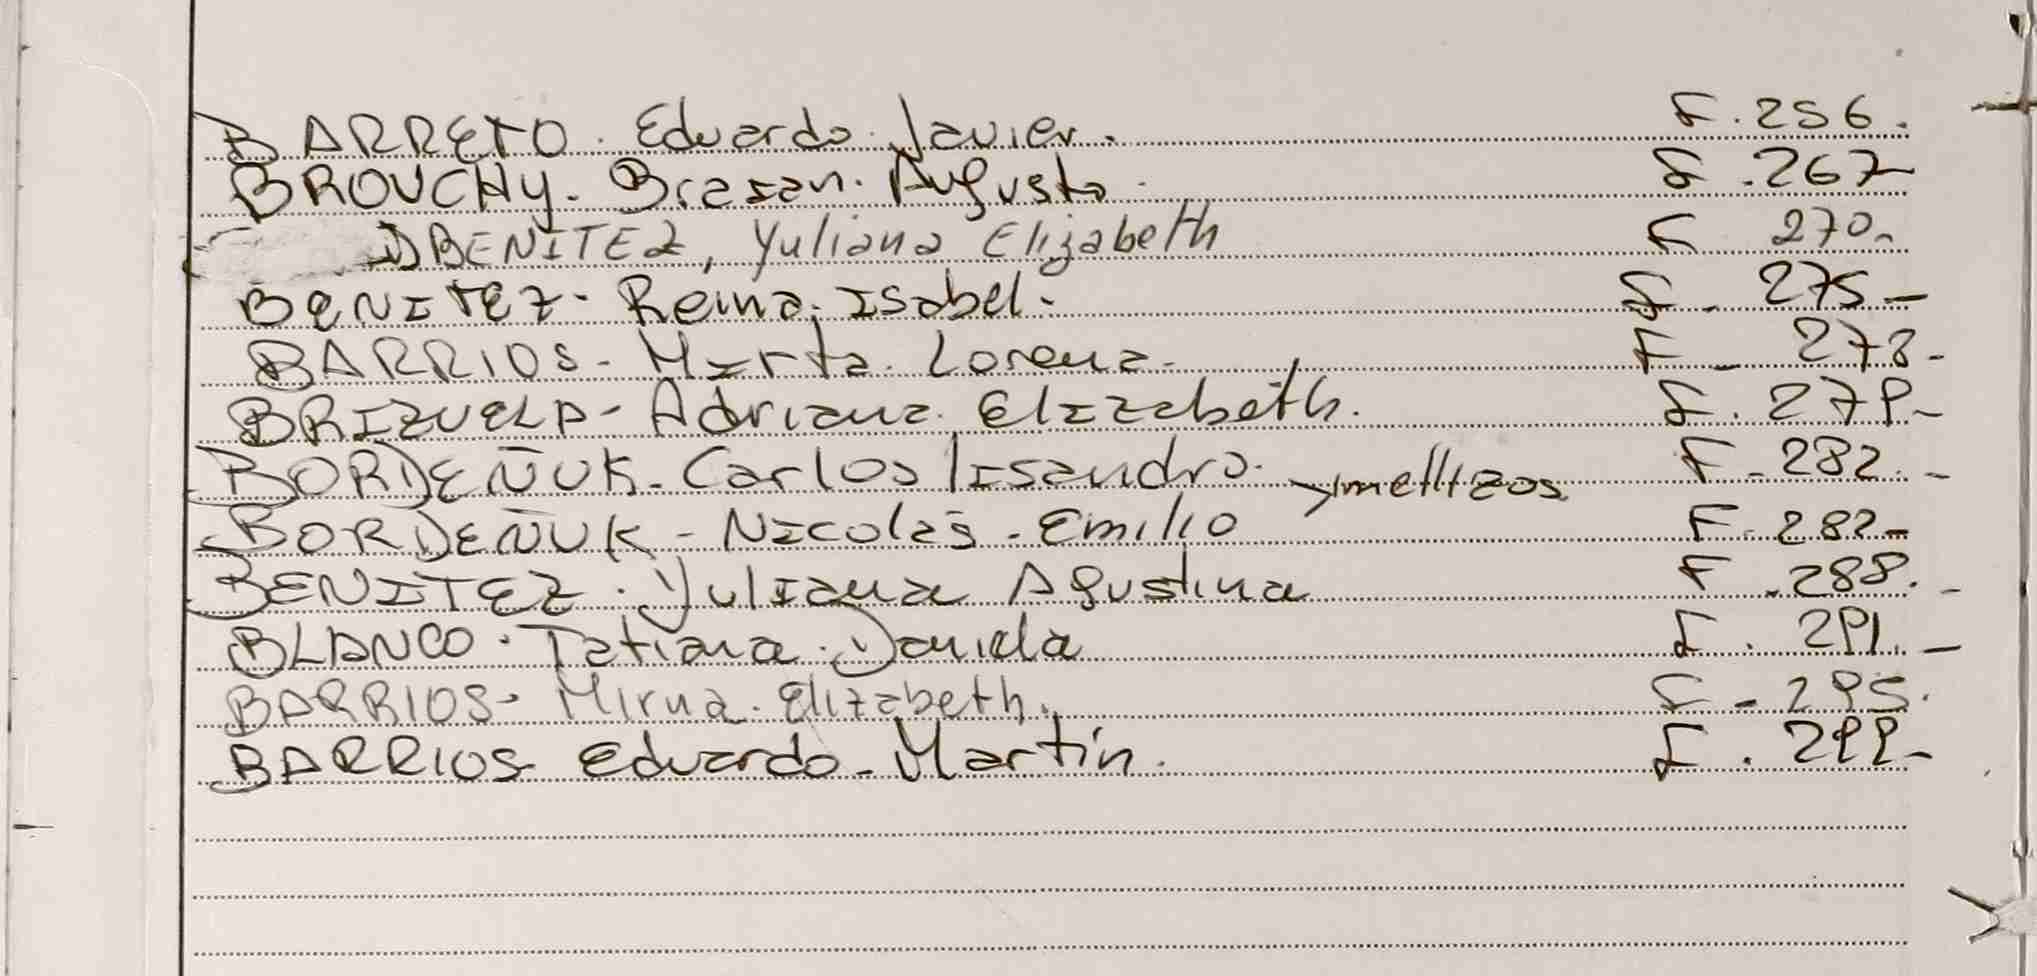 BARRETO. Eduardo. Javier. F. 256.
BROUCHY. Braian. Augusto. F. 267-
BENITEZ, Yuliana Elizabeth F 270-
BENITEZ. Reina. Isabel. F. 275-
BARRIOS- Mirta. Lorena. F - 278-
BRIZUELA- Adriana. Elizabeth. F. 279-
BORDEÑUK. Carlos lisandro. F-282.-
mellizos
BORDEÑUK - Nicolas. Emilio F. 282-
BENITEZ. Yuliana Agustina F. 288.-
BLANCO. Tatiana. Daniela F. 291.-
BARRIOS- Mirna. Elizabeth. F - 295.
BARRIOS Eduardo. Martín. F. 299-